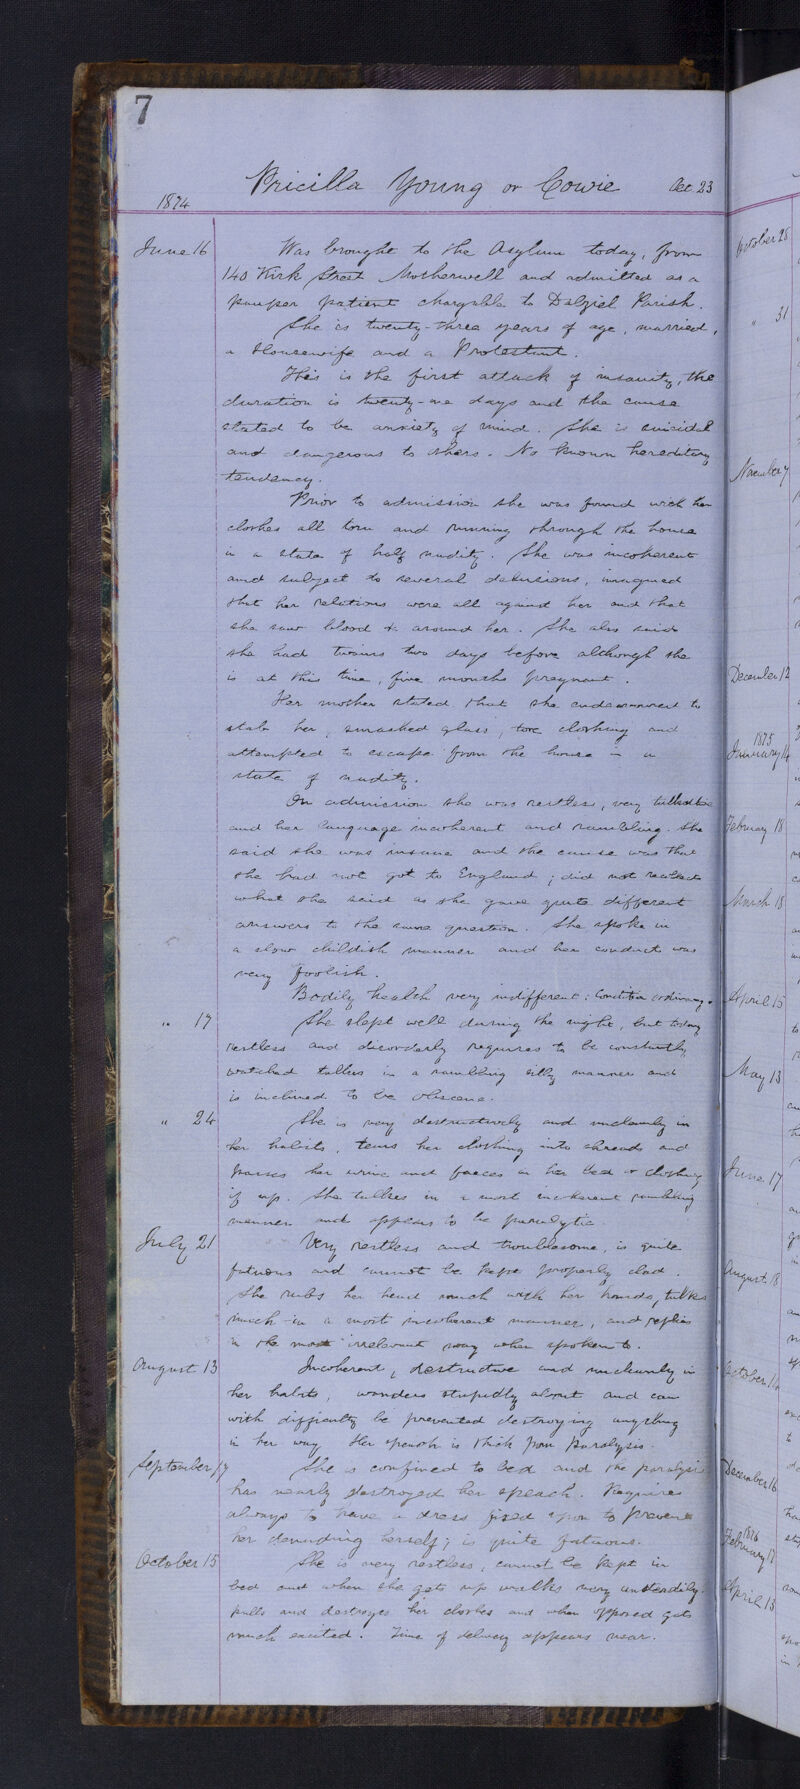 7
Pricilla Young or Cowie Dec 23
1874
June 16 Was brought to the Asylum today, from
140 Kirk Street Motherwell and admitted as a
pauper patient chargable to Dalziel Parish.
She is twenty-three years of age, married,
a Housewife and a Protestant.
This is the first attack of insanity, the
duration is twenty-one days and the cause
stated to be anxiety of mind. She is suicidal
and dangerous to others. No known hereditary
tendency.
Prior to admission she was found with her
clothes all torn and running through the house
in a state of half nudity. She was incoherent
and subject to several delusions, imagined
that her relations were all against her and that
she saw blood &c around her. She also said
she had twins two days before although she
is at this time, five months pregnant.
Her mother stated that she endeavoured to
stab her, smashed glass, tore clothing and
attempted to escape from the house in a
state of nudity.
On admission she was restless, very talkative
and her language incoherent and rambling. She
said she was insane and the cause was that
she had not got to England; did not recollect
what she said as she gave quite different
answers to the same question. She spoke in
a slow childish manner and her conduct was
very foolish.
Bodily health very indifferent: Condition ordinary.
" 17 She slept well during the night, but today
restless and disorderly requires to be constantly
watched talks in a rambling silly manner and
is inclined to be obscene.
" 24 She is very destructively and uncleanly in
her habits, tears her clothing into shreads and
passes her urine and faeces in her bed or clothing
if up. She talks in a most incoherent rambling
manner and appears to be paralytic.
July 21 Very restless and troublesome, is quite
fatuous and cannot be kept properly clad.
She rubs her head much with her hands, talks
much in a most incoherent manner, and replies
in the most irrelevant way when spoken to.
August 13 Incoherent, destructive and uncleanly in
her habits, wanders stupidly about and can
with difficulty be prevented destroying anything
in her way. Her speach is thick from paralysis.
September 17 She is confined to bed and the paralysis
has nearly destroyed her speach. Requires
always to have a dress fixed upon to prevent
her denuding herself; is quite fatuous.
October 15 She is very restless, cannot be kept in
bed and when she gets up walks very unsteadily.
pulls and destroys her clothes and when opposed gets
much excited. Time of delivery appears near.
October 28
" 31
November 7
December 12
1875
January 14
February 18
March 18
April 15
May 13
June 17
August 18
October 14
December 16
1876
February 17
April 13